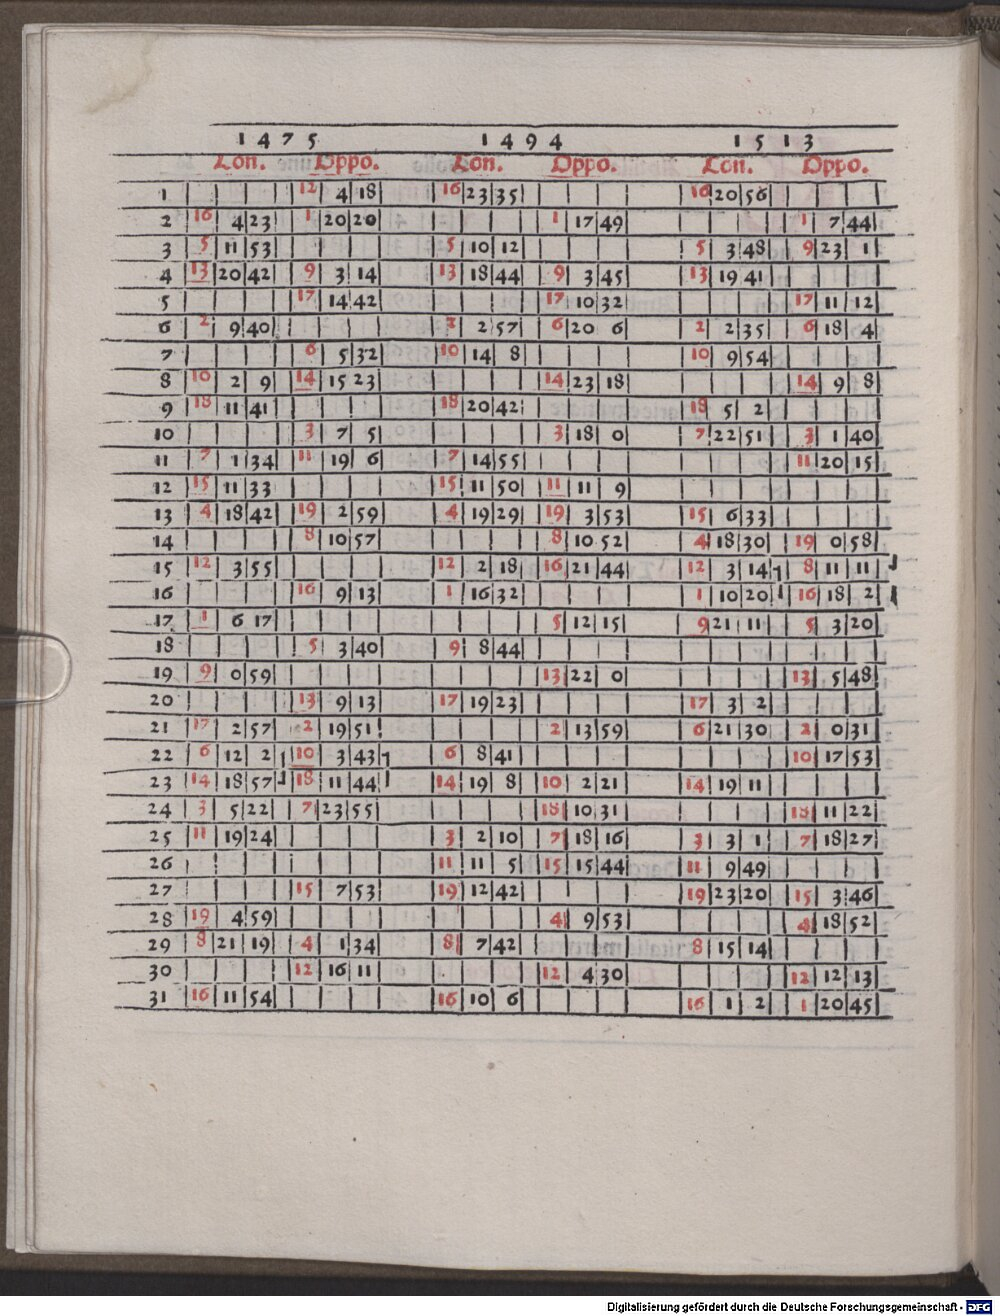 1475 1494 1513
Con. Oppo. Con. Oppo. Con. Oppo.
1 12 4 18 16 23 35 16 20 56
2 16 4 23 1 20 20 1 17 49 1 7 44
3 5 11 53 5 10 12 5 3 48 9 23 1
4 13 20 42 9 3 14 13 18 44 9 3 45 13 19 41
5 17 14 42 17 10 32 17 11 12
6 2 9 40 2 2 57 6 20 6 2 2 35 6 18 4
7 6 5 32 10 14 8 10 9 54
8 10 2 9 14 15 23 14 23 18 14 9 8
9 18 11 41 18 20 42 18 5 2
10 3 7 5 3 18 0 7 22 51 3 1 40
11 7 1 34 11 19 6 7 14 55 11 20 15
12 15 11 33 15 11 50 11 11 9
13 4 18 42 19 2 59 4 19 29 19 3 53 15 6 33
14 8 10 57 8 10 52 4 18 30 19 0 58
15 12 3 55 12 2 18 16 21 44 12 3 14 8 11 11
16 16 9 13 1 16 32 1 10 20 16 18 2
17 1 6 17 5 12 15 9 21 11 5 3 20
18 5 3 40 9 8 44
19 9 0 59 13 22 0 13 5 48
20 13 9 13 17 19 23 17 3 2
21 17 2 57 2 19 51 2 13 59 6 21 30 2 0 31
22 6 12 2 10 3 43 6 8 41 10 17 53
23 14 18 57 18 11 44 14 19 8 10 2 21 14 19 11
24 3 5 22 7 23 55 18 10 31 18 11 22
25 11 19 24 3 2 10 7 18 16 3 3 1 7 18 27
26 11 11 5 15 15 44 11 9 49
27 15 7 53 19 12 42 19 23 20 15 3 46
28 19 4 59 4 9 53 4 18 52
29 8 21 19 4 1 34 8 7 42 8 15 14
30 12 16 11 12 4 30 12 12 13
31 16 11 54 16 10 6 16 1 2 1 20 45
Digitalisierung gefördert durch die Deutsche Forschungsgemeinschaft - DFG